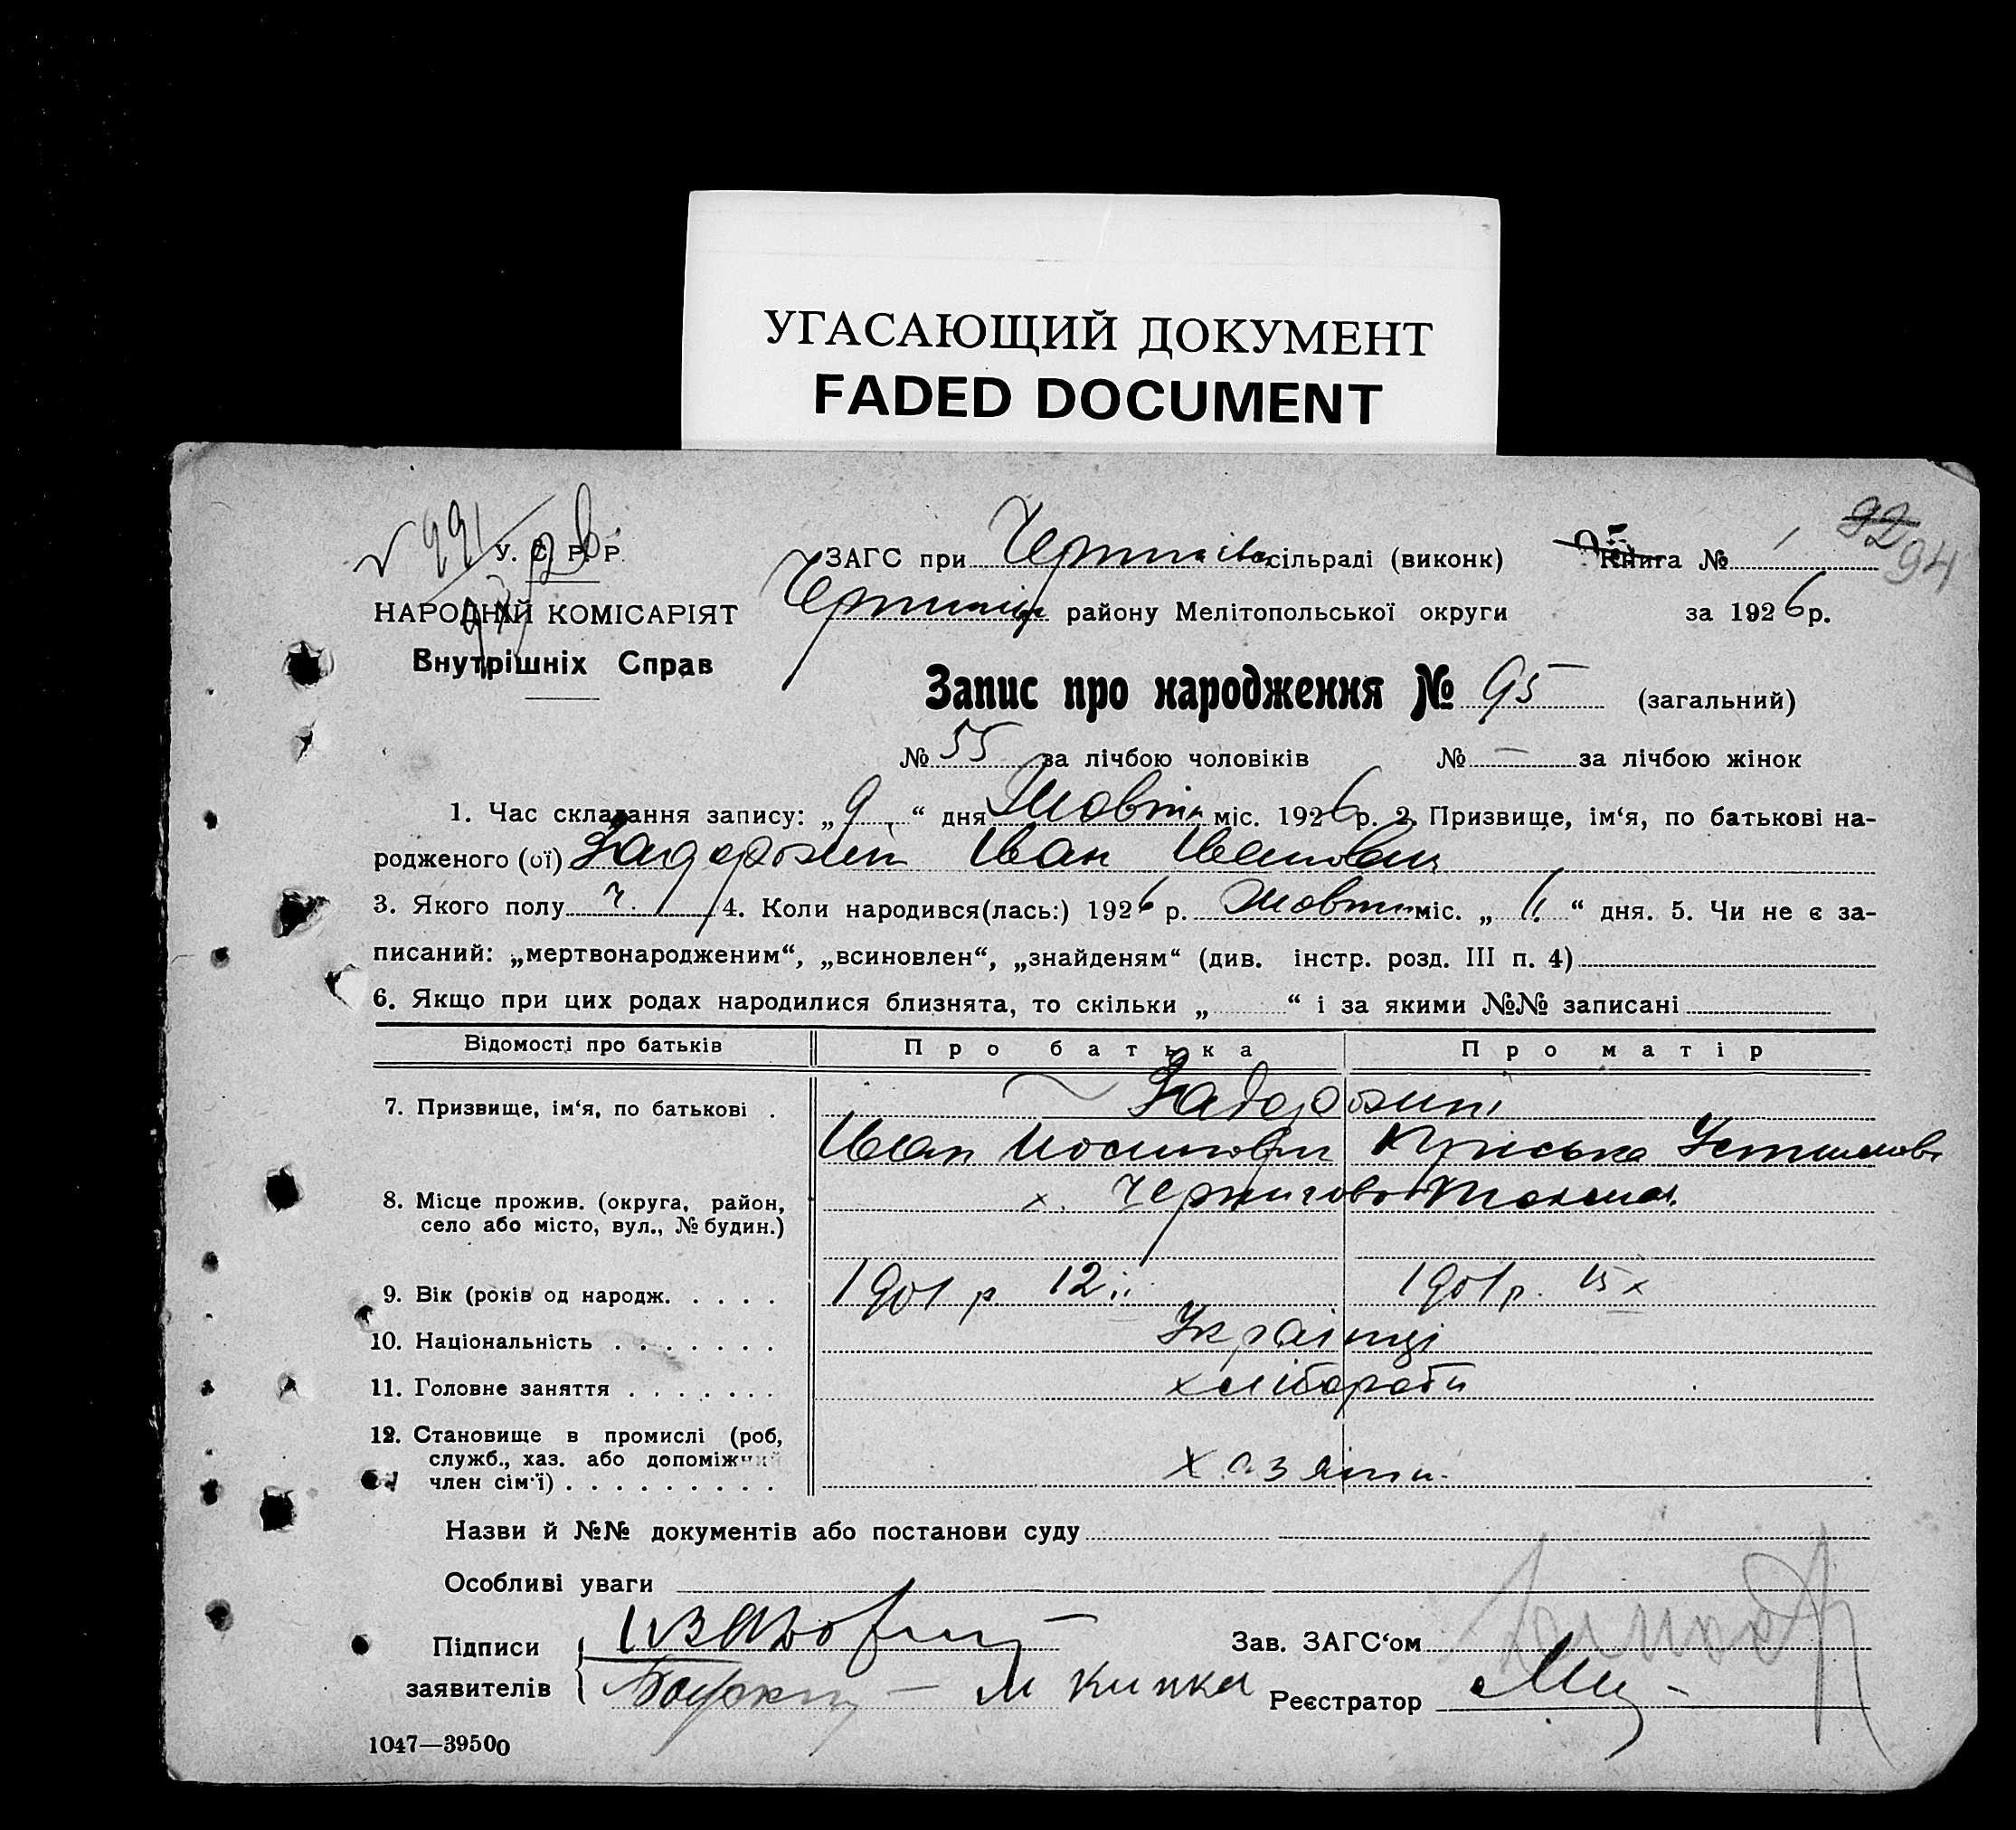 УГАСАЮЩИЙ ДОКУМЕНТ
FADED DOCUMENT
У. С. Р. Р.
НАРОДНІЙ КОМІСАРІЯТ
Внутрішніх Справ
ЗАГС при сільраді (виконк)
Книга № 1
92 94
району Мелітопольської округи за 1926 р.
Запис про народження № 95 (загальний)
№ 55 за лічбою чоловіків № — за лічбою жінок
1. Час складання запису: „9“ дня Жовтн міс. 1926 р. 2. Призвище, ім‘я, по батькові на-
родженого (ої) Задорожній Иван Иванович
3. Якого полу ч. 4. Коли народився(лась:) 1926 р. Жовтн міс. „ “ дня. 5. Чи не є за-
писаний: „мертвонародженим“, „всиновлен“, „знайденям“ (див. інстр. розд. III п. 4)
6. Якщо при цих родах народилися близнята, то скільки „ “ і за якими №№ записані
Відомості про батьків Про батька Про матір
7. Призвище, ім‘я, по батькові . Задорожні
Иван Иосипович
8. Місце прожив. (округа, район, х. Чернигово Токмач.
село або місто, вул., № будин.)
9. Вік (років од народж. . . . . 1901 р 12 ii 1901 р. 15 x
10. Національність . . . . . . . Українці
11. Головне заняття . . . . . . . хлібороби
12. Становище в промислі (роб,
служб., хаз. або допоміжний
член сім‘ї) . . . . . . . . . хазяіни.
Назви й №№ документів або постанови суду
Особливі уваги
Підписи
заявителів
М Кипка
Зав. ЗАГС‘ом
Реєстратор
1047—39500